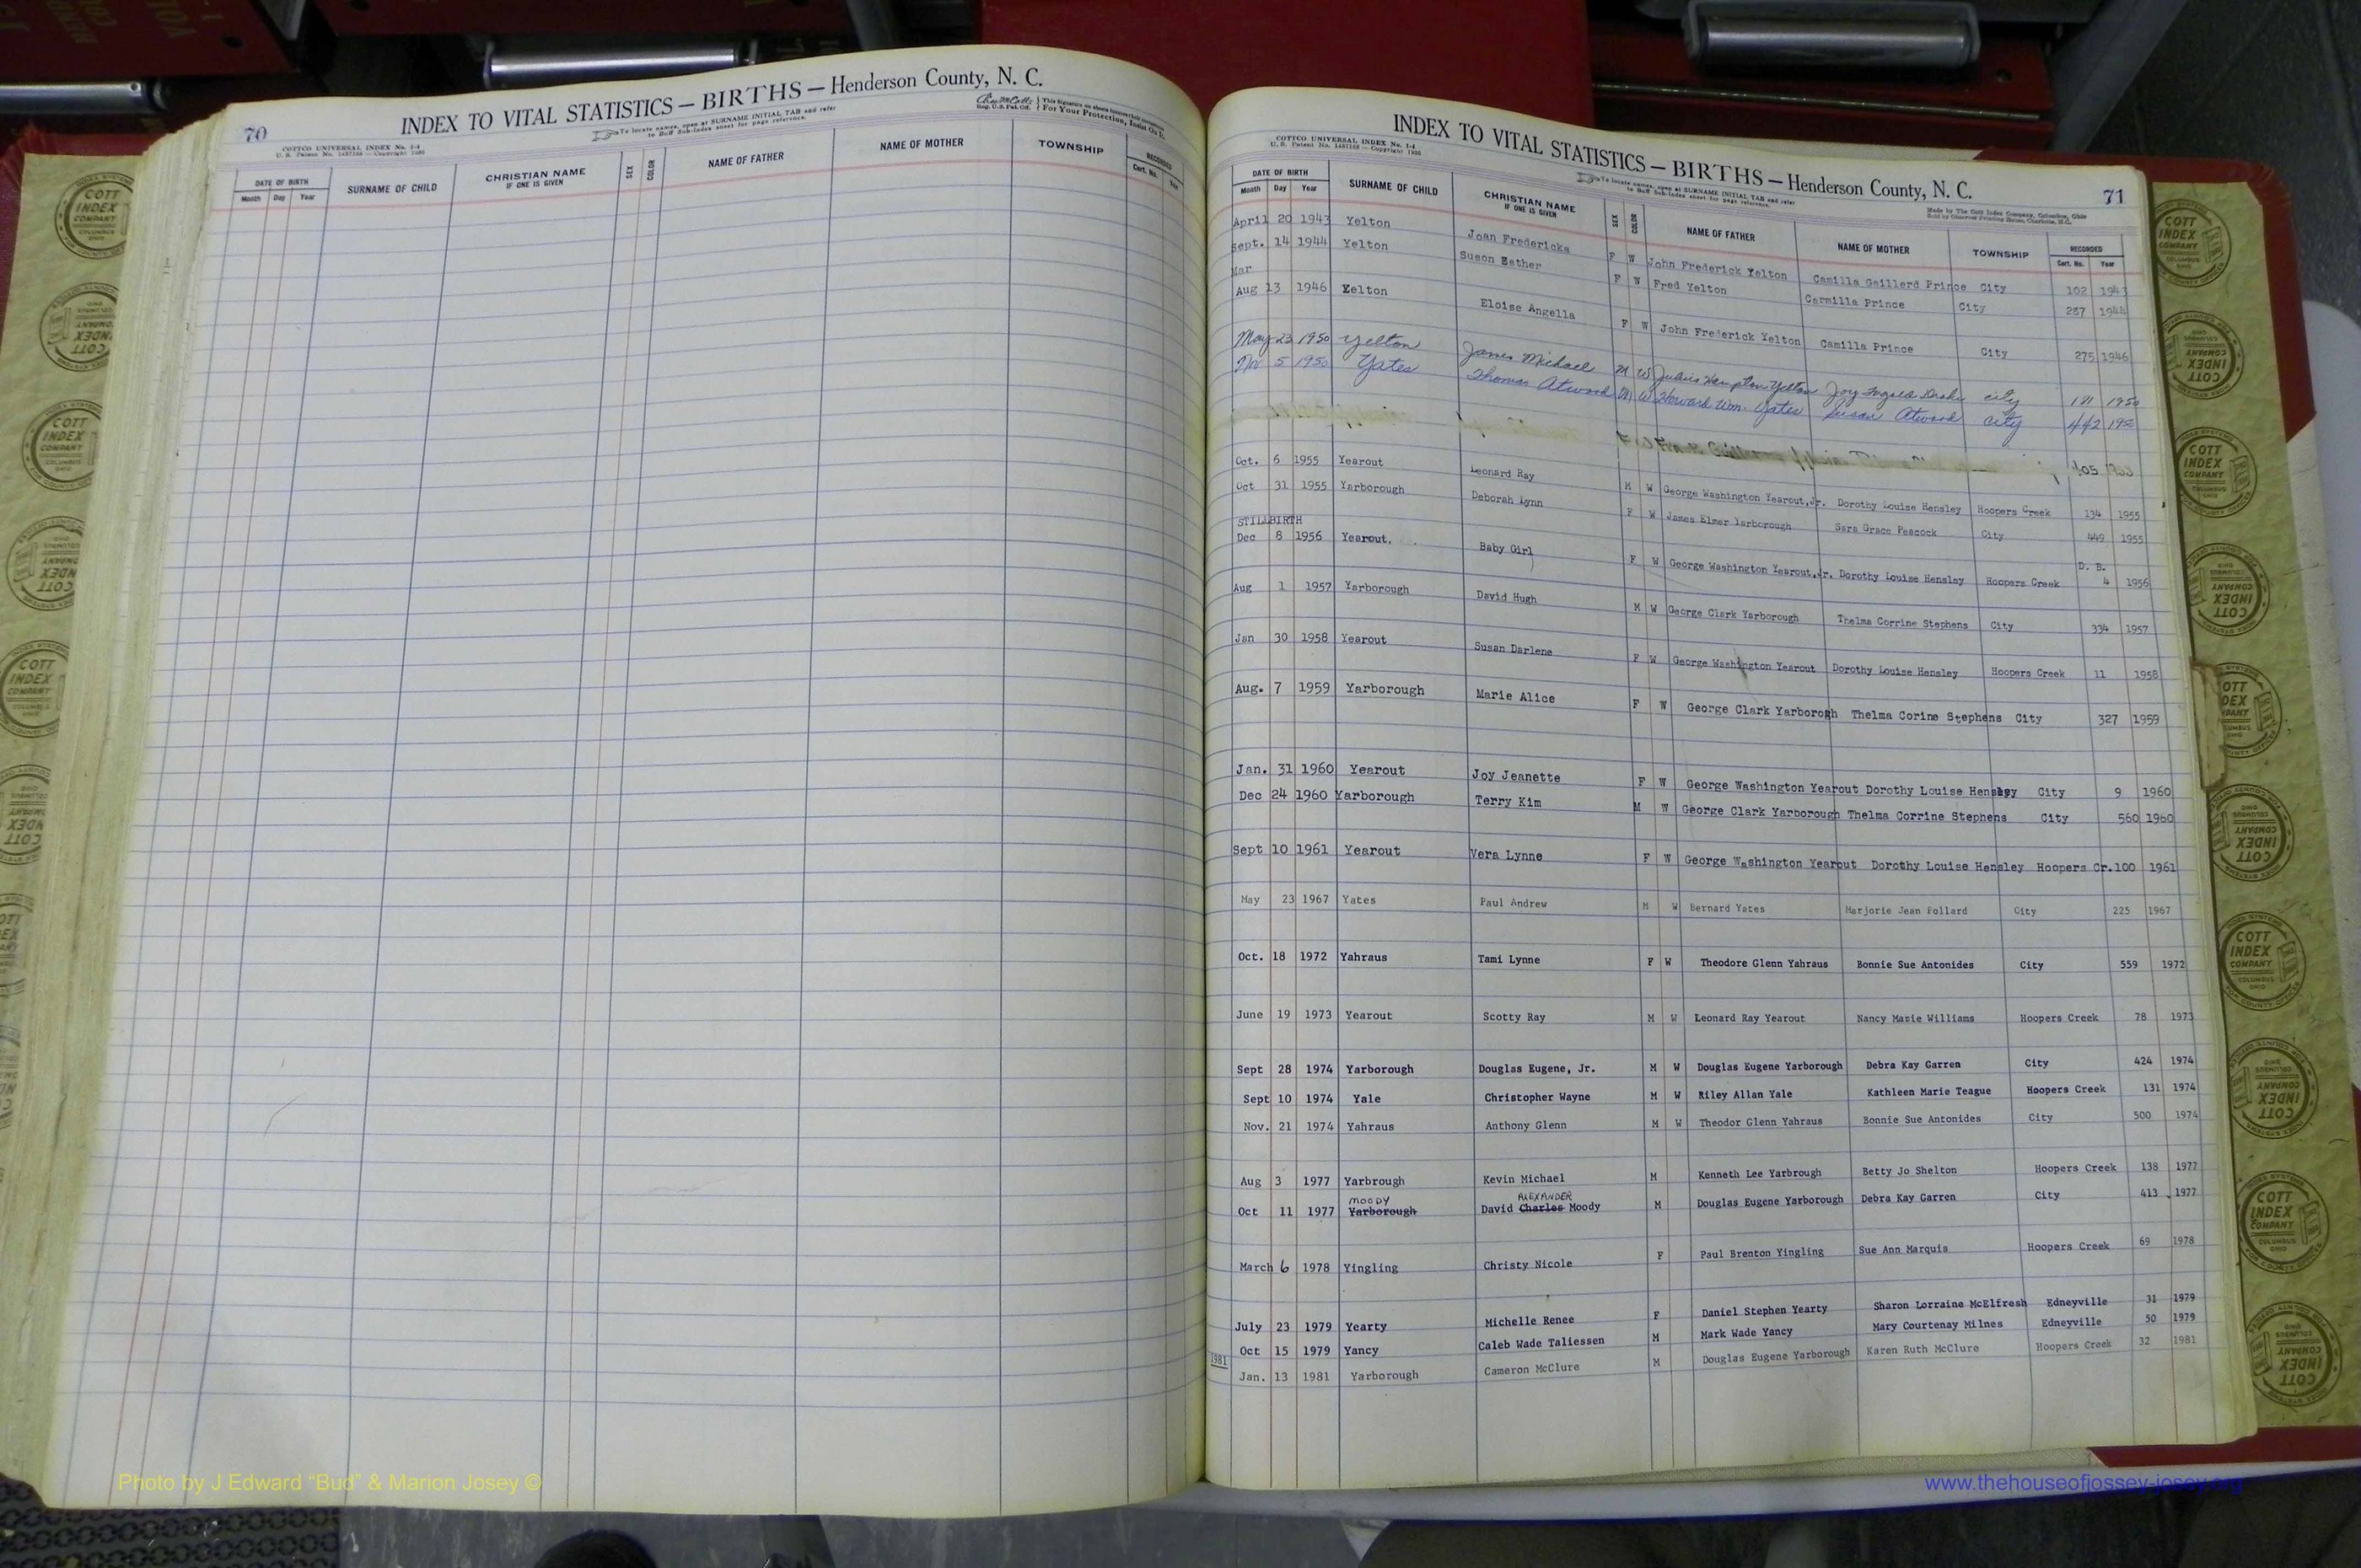 70
INDEX TO VITAL STATISTICS — BIRTHS — Henderson County, N. C.
COTTCO UNIVERSAL INDEX No. I-4
U. S. Patent No. 1457168 — Copyright 1930
To locate names, open at SURNAME INITIAL TAB and refer
to Buff Sub-Index sheet for page reference.
DATE OF BIRTH SURNAME OF CHILD CHRISTIAN NAME IF ONE IS GIVEN SEX COLOR NAME OF FATHER NAME OF MOTHER TOWNSHIP RECORDED
Month Day Year Cert. No.
INDEX TO VITAL STATISTICS — BIRTHS — Henderson County, N. C.
71
COTTCO UNIVERSAL INDEX No. I-4
U. S. Patent No. 1457168 — Copyright 1930
To locate names, open at SURNAME INITIAL TAB and refer
to Buff Sub-Index sheet for page reference.
Made by The Cott Index Company, Columbus, Ohio
Sold by Observer Printing House, Charlotte, N.C.
DATE OF BIRTH SURNAME OF CHILD CHRISTIAN NAME IF ONE IS GIVEN SEX COLOR NAME OF FATHER NAME OF MOTHER TOWNSHIP RECORDED
Month Day Year Cert. No. Year
April 20 1943 Yelton Joan Fredericka F W John Frederick Yelton Camilla Gaillerd Prince City 102 1943
Sept. 14 1944 Yelton Suson Esther F W Fred Yelton Carmilla Prince City 237 1944
Mar
Aug 13 1946 Yelton Eloise Angella F W John Frederick Yelton Camilla Prince City 275 1946
May 23 1950 Yelton James Michael M W Julius Hampton Yelton Joy Drake city 1950
5 1950 Yates Thomas Atwood M W Howard Wm. Yates Susan Atwood city 442 1950
F W
Oct. 6 1955 Yearout Leonard Ray M W George Washington Yearout, Jr. Dorothy Louise Hensley Hoopers Creek 134 1955
Oct 31 1955 Yarborough Deborah Lynn F W James Elmer Yarborough Sara Grace Peacock City 449 1955
STILLBIRTH
Dec 8 1956 Yearout, Baby Girl F W George Washington Yearout, Jr. Dorothy Louise Hensley Hoopers Creek D. B. 4 1956
Aug 1 1957 Yarborough David Hugh M W George Clark Yarborough Thelma Corrine Stephens City 334 1957
Jan 30 1958 Yearout Susan Darlene F W George Washington Yearout Dorothy Louise Hensley Hoopers Creek 11 1958
Aug. 7 1959 Yarborough Marie Alice F W George Clark Yarborogh Thelma Corine Stephens City 327 1959
Jan. 31 1960 Yearout Joy Jeanette F W George Washington Yearout Dorothy Louise Hensley City 9 1960
Dec 24 1960 Yarborough Terry Kim M W George Clark Yarborough Thelma Corrine Stephens City 560 1960
Sept 10 1961 Yearout Vera Lynne F W George Washington Yearout Dorothy Louise Hensley Hoopers Cr. 100 1961
May 23 1967 Yates Paul Andrew M W Bernard Yates Marjorie Jean Pollard City 225 1967
Oct. 18 1972 Yahraus Tami Lynne F W Theodore Glenn Yahraus Bonnie Sue Antonides City 559 1972
June 19 1973 Yearout Scotty Ray M W Leonard Ray Yearout Nancy Marie Williams Hoopers Creek 78 1973
Sept 28 1974 Yarborough Douglas Eugene, Jr. M W Douglas Eugene Yarborough Debra Kay Garren City 424 1974
Sept 10 1974 Yale Christopher Wayne M W Riley Allan Yale Kathleen Marie Teague Hoopers Creek 131 1974
Nov. 21 1974 Yahraus Anthony Glenn M W Theodor Glenn Yahraus Bonnie Sue Antonides City 500 1974
Aug 3 1977 Yarbrough Kevin Michael M Kenneth Lee Yarbrough Betty Jo Shelton Hoopers Creek 138 1977
MOODY ALEXANDER
Oct 11 1977 Yarborough David Charles Moody M Douglas Eugene Yarborough Debra Kay Garren City 413 1977
March 6 1978 Yingling Christy Nicole F Paul Brenton Yingling Sue Ann Marquis Hoopers Creek 69 1978
July 23 1979 Yearty Michelle Renee F Daniel Stephen Yearty Sharon Lorraine McElfresh Edneyville 31 1979
Oct 15 1979 Yancy Caleb Wade Taliessen M Mark Wade Yancy Mary Courtenay Milnes Edneyville 50 1979
1981
Jan. 13 1981 Yarborough Cameron McClure M Douglas Eugene Yarborough Karen Ruth McClure Hoopers Creek 32 1981
Photo by J Edward “Bud” & Marion Josey ©
www.thehouseofjossey-josey.org